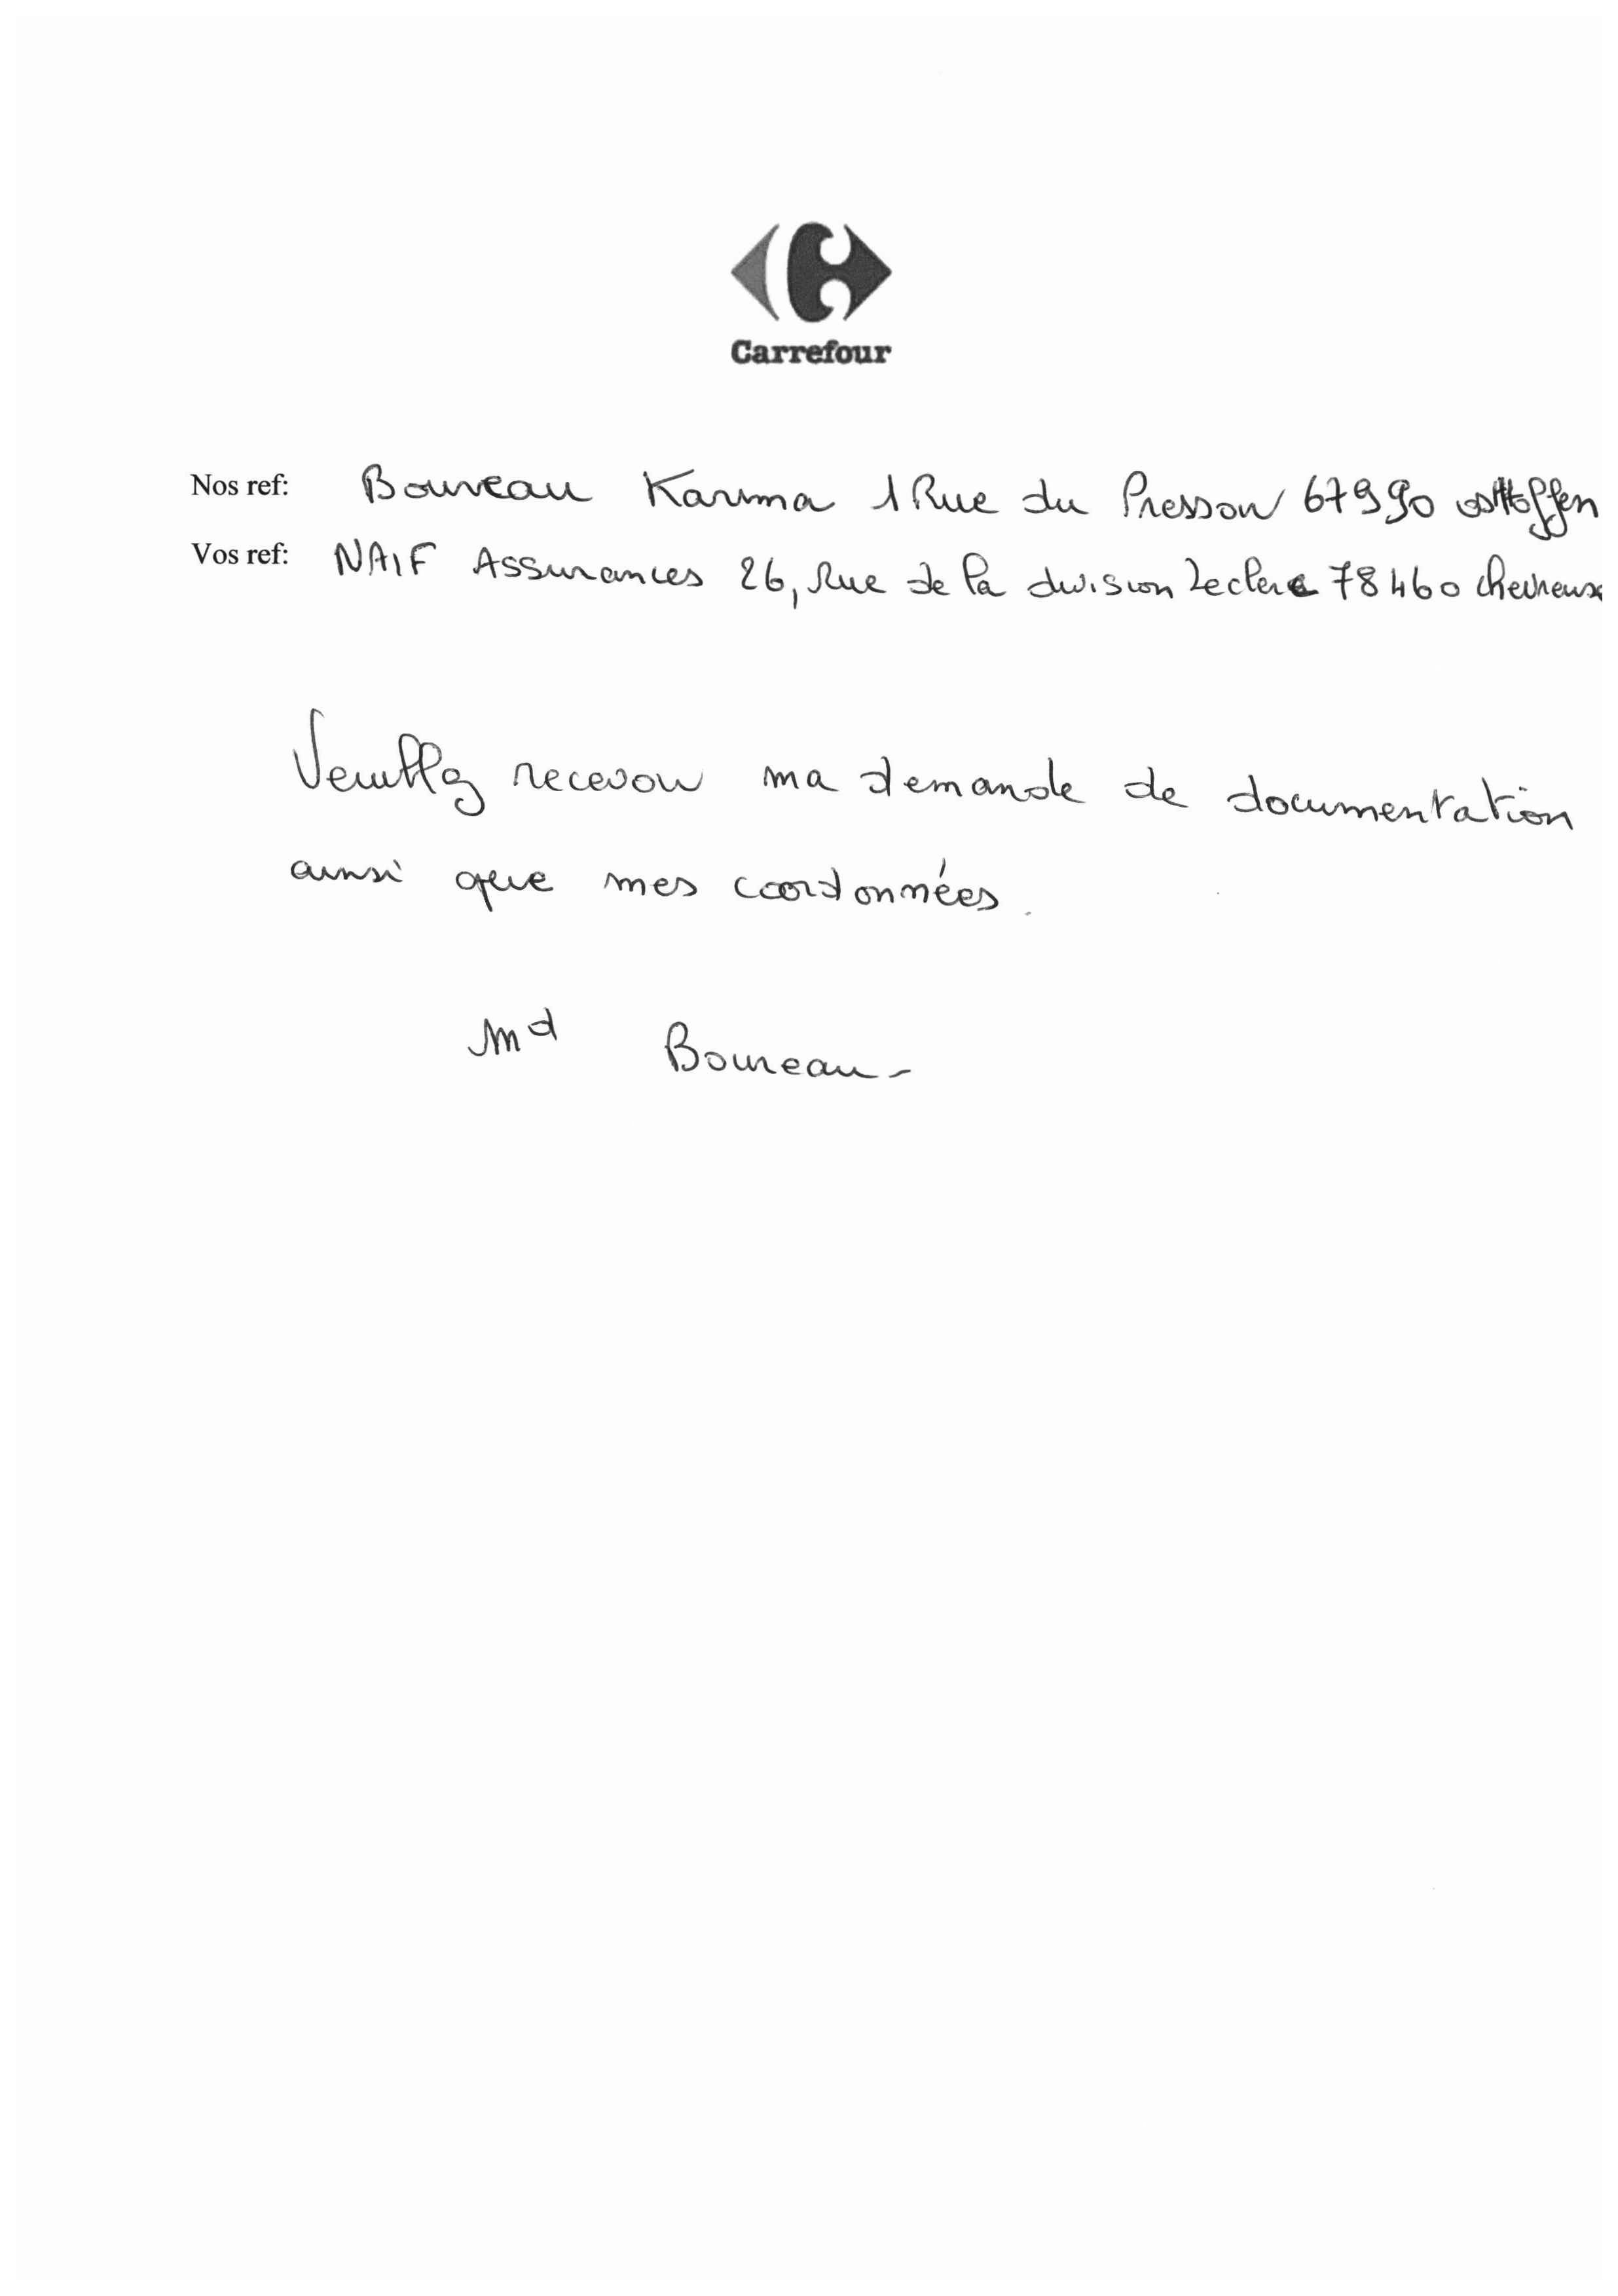 Carrefour
Nos ref: Boureau Karima 1 Rue du Pressoir 67990 osthoffen
Vos ref: NAIF Assurances 26, Rue de la division Leclerc 78460 chevreuse
Veuillez recevoir ma demande de documentation
ainsi que mes coordonnées.
Md Boureau-